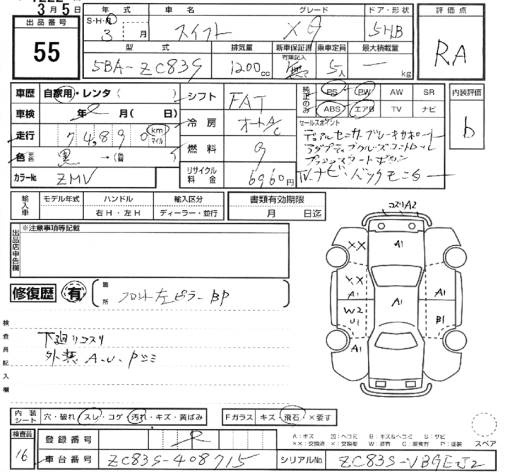 3月5日
出品番号
55
年式
S・H・R
3 月
車名
スイフト
グレード
XG
ドア・形状
5HB
評価点
RA
型式
5BA-ZC83S
排気量
1200cc
新車保証書
有 記入 無
乗車定員
5人
最大積載量
kg
車歴 自家用・レンタ ( )
車検 年 月
走行 74890 km マイル
色 黒 → (普)
カラーNo. ZMV
シフト FAT
冷房 オートA/C
燃料 G
リサイクル料金 6960円
純正のみ PS PW AW SR
ABS エアB TV ナビ
内装評価
b
セールスポイント
デュアルセンサーブレーキサポート
アダプティブクルーズコントロール
プッシュスタートボタン
TV.ナビ・バックモニター
輸入車 モデル年式 ハンドル 輸入区分
年 右H・左H ディーラー・並行
書類有効期限
月 日迄
出品店申告欄
※注意事項等記載
修復歴 有
箇所 フロント左ピラーBP
検査員記入欄
下廻りコスリ
外装 A・U・Pコミ
コスリA2
A1
XX
A1
XX
A1
A1
A1
W2
U1
B1
A1
内装シート 穴・破れ スレ・コゲ 汚れ キズ・黄ばみ
Fガラス キズ 飛石 ×要す
検査員
16
登録番号
車台番号 ZC83S-408715
シリアルNo. ZC83S-VBGE-J2
スペア